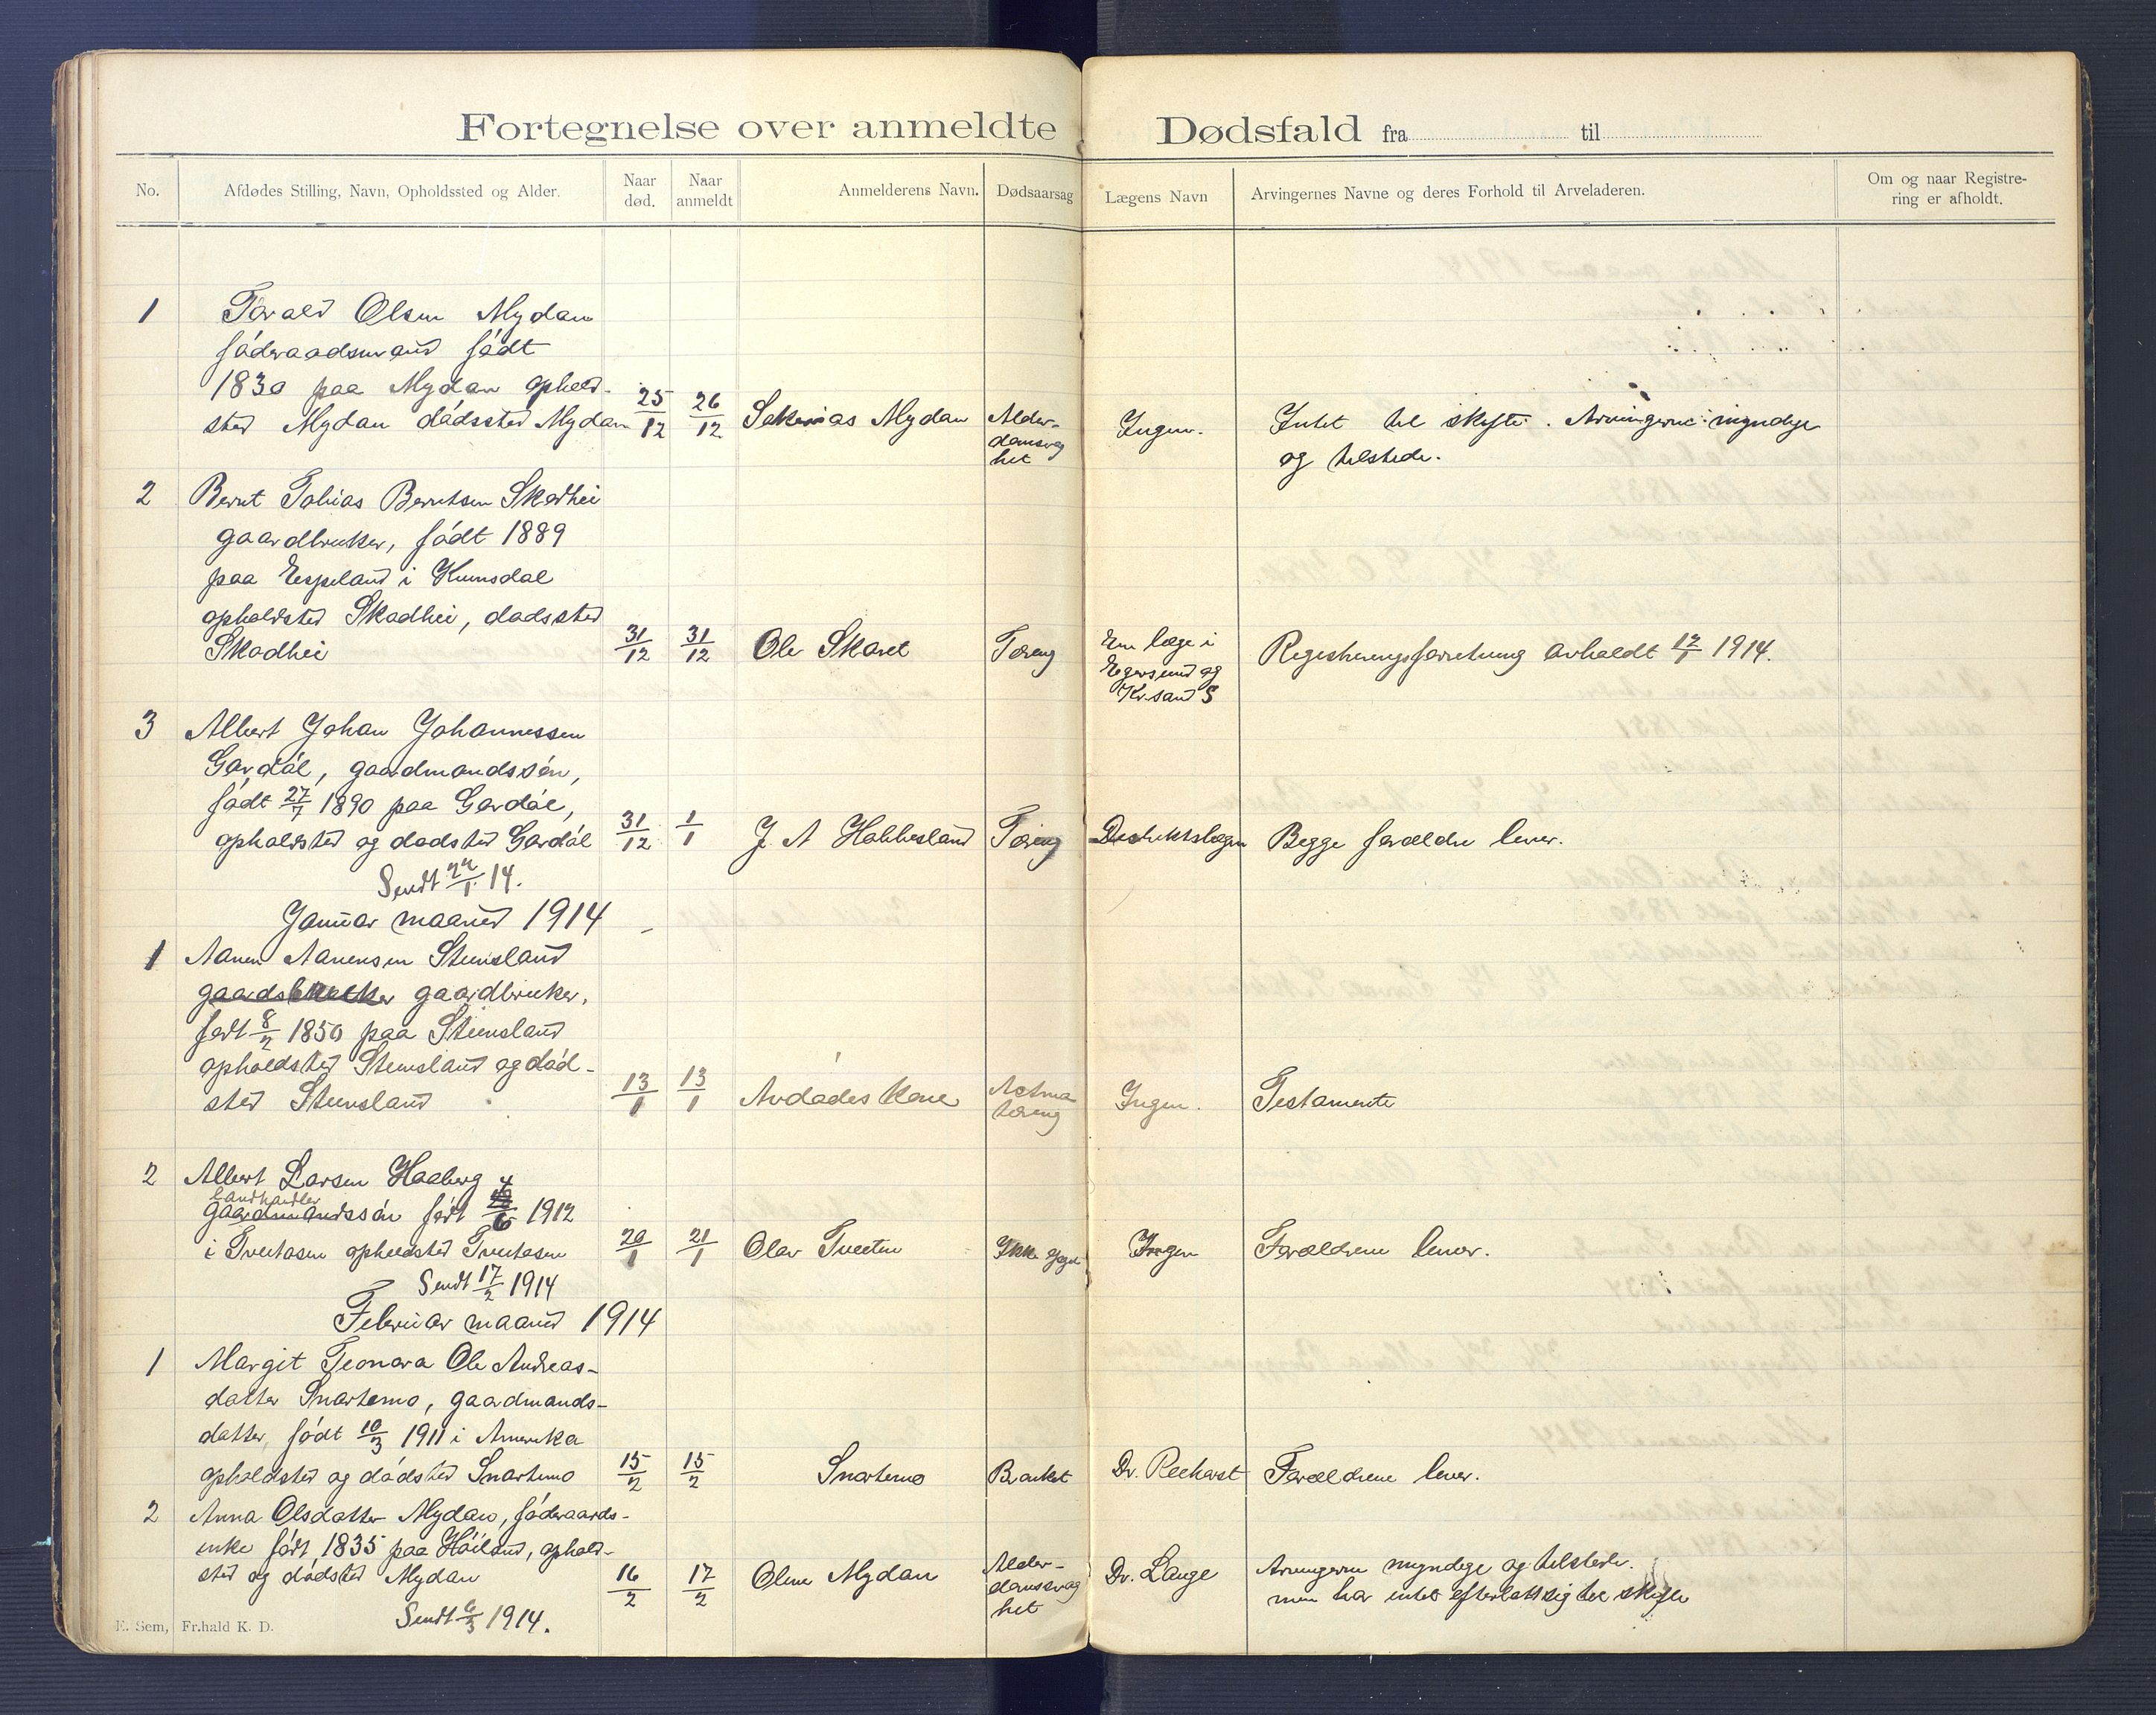 Fortegnelse over anmeldte Dødsfald fra til
No.
Afdødes Stilling, Navn, Opholdssted og Alder.
Naar død.
Naar anmeldt
Anmelderens Navn.
Dødsaarsag
Lægens Navn
Arvingernes Navne og deres Forhold til Arveladeren.
Om og naar Registre-
ring er afholdt.
1 Torald Olsen Mydan
föderaadsmand födt
1830 paa Mydan ophold-
sted Mydan dödssted Mydan 25/12 26/12 Sakarias Mydan Alder- Ingen. Intet til skifte. Arvingerne myndige
domsvag
het
og tilstede.
2 Bernt Tobias Berntsen Skadhei
gaardbruker, födt 1889
paa Espeland i Kvinsdal
opholdsted Skadhei, dødssted
Skadhei 31/12 31/12 Ole Skaret Tæring Em læge i Registreringsforretning avholdt 17/1 1914.
Egersund og
Kr.sand S
3 Albert Johan Johannessen
Gardöl, gaardmandssön,
födt 27/7 1890 paa Gardöl,
opholdsted og dødsted Gardöl 31/12 1/1 J. A Hobbesland Tæring Distriktslægen Begge forældre lever.
Sendt 24/1 14.
Januar maaned 1914
1 Aanen Aanensen Steinsland
gaardbruker,
født 8/2 1850 paa Steinsland
opholdsted Steinsland og död-
sted Steinsland 13/1 13/1 Avdödes kone Astma Ingen. Testamente
tæring
2 Albert Larsen Haaberg
landhandler
gaardmandssön født 4/6 1912
i Tveitaasen opholdsted Tveitaasen 20/1 21/1 Olav Tveiten Ikke opgit Ingen Forældrene lever.
Sendt 17/2 1914
Februar maaned 1914
1 Margit Teonora Ole Andreas-
datter Snartemo, gaardmands-
datter, födt 10/3 1911 i Amerika
opholdsted og dödsted Snartemo 15/2 15/2 Snartemo Bronkit Dr. Forældrene lever.
2 Anna Olsdatter Mydan, föderaads-
enke födt 1835 paa Höiland, ophold-
sted og dödsted Mydan 16/2 17/2 Olene Mydan Alder- Dr. Lange Arvingerne myndige og tilstede.
domssvag
het
men har intet efterlatt sig til skifte
Sendt 6/3 1914.
E. Sem, Fr.hald K. D.